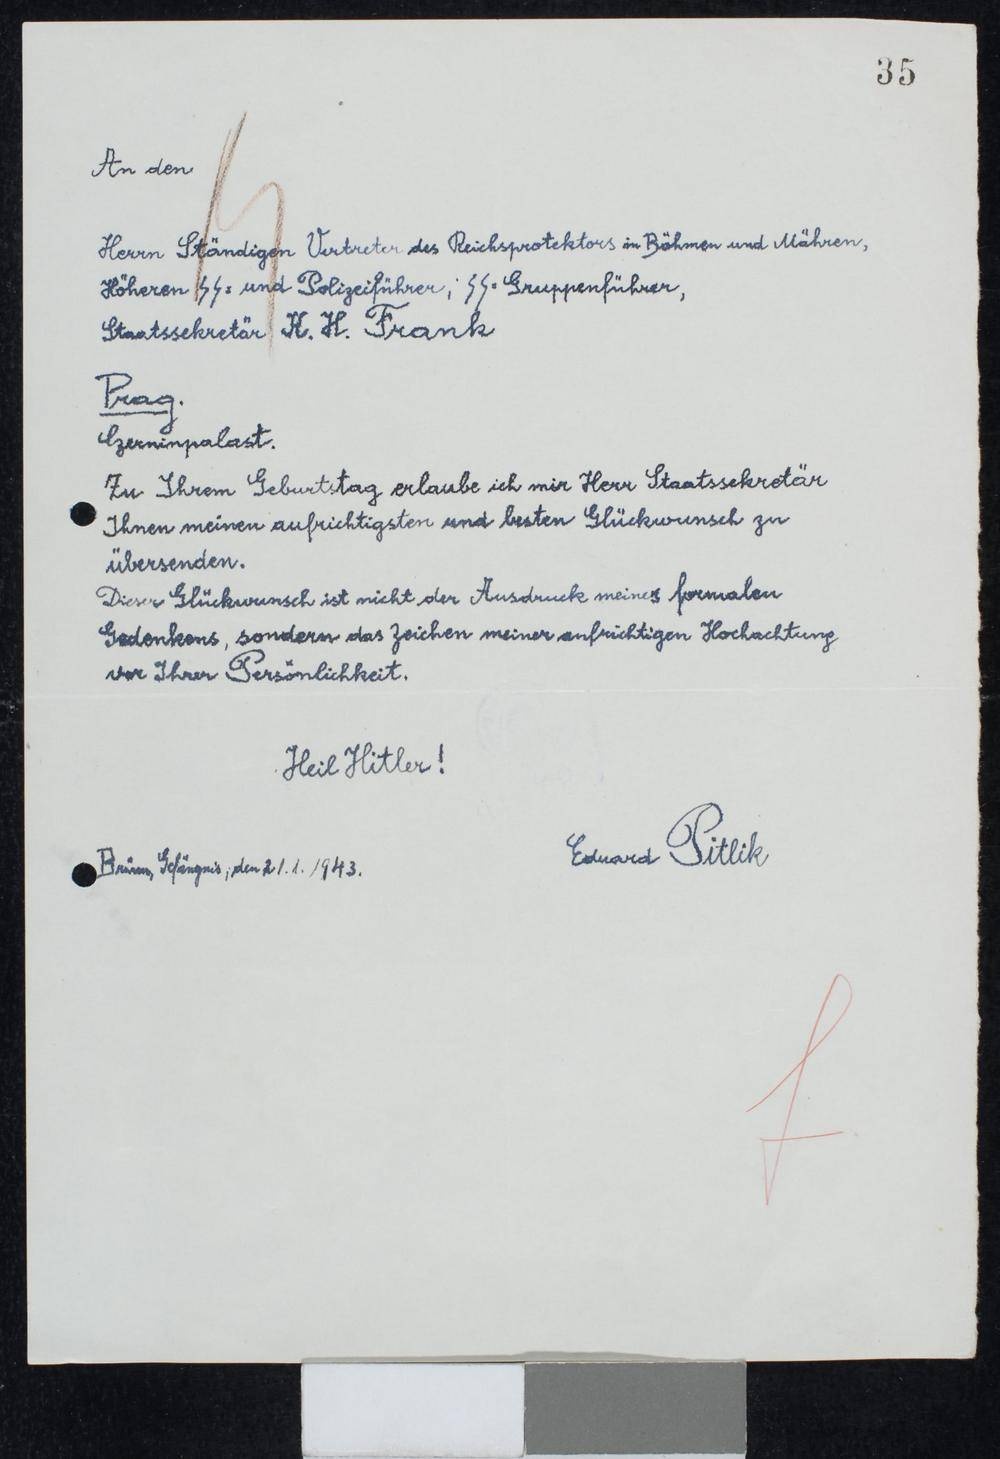 35
An den
Herrn Ständigen Vertreter des Reichsprotektors in Böhmen und Mähren,
Höheren SS= und Polizeiführer, SS=Gruppenführer,
Staatssekretär K. H. Frank
Prag.
Czerninpalast.
Zu Ihrem Geburtstag erlaube ich mir Herr Staatssekretär
Ihnen meinen aufrichtigsten und besten Glückwunsch zu
übersenden.
Dieser Glückwunsch ist nicht der Ausdruck meines formalen
Gedenkens, sondern das Zeichen meiner aufrichtigen Hochachtung
vor Ihrer Persönlichkeit.
Heil Hitler!
Eduard Pitlik
Brünn, Gefängnis, den 21.1.1943.